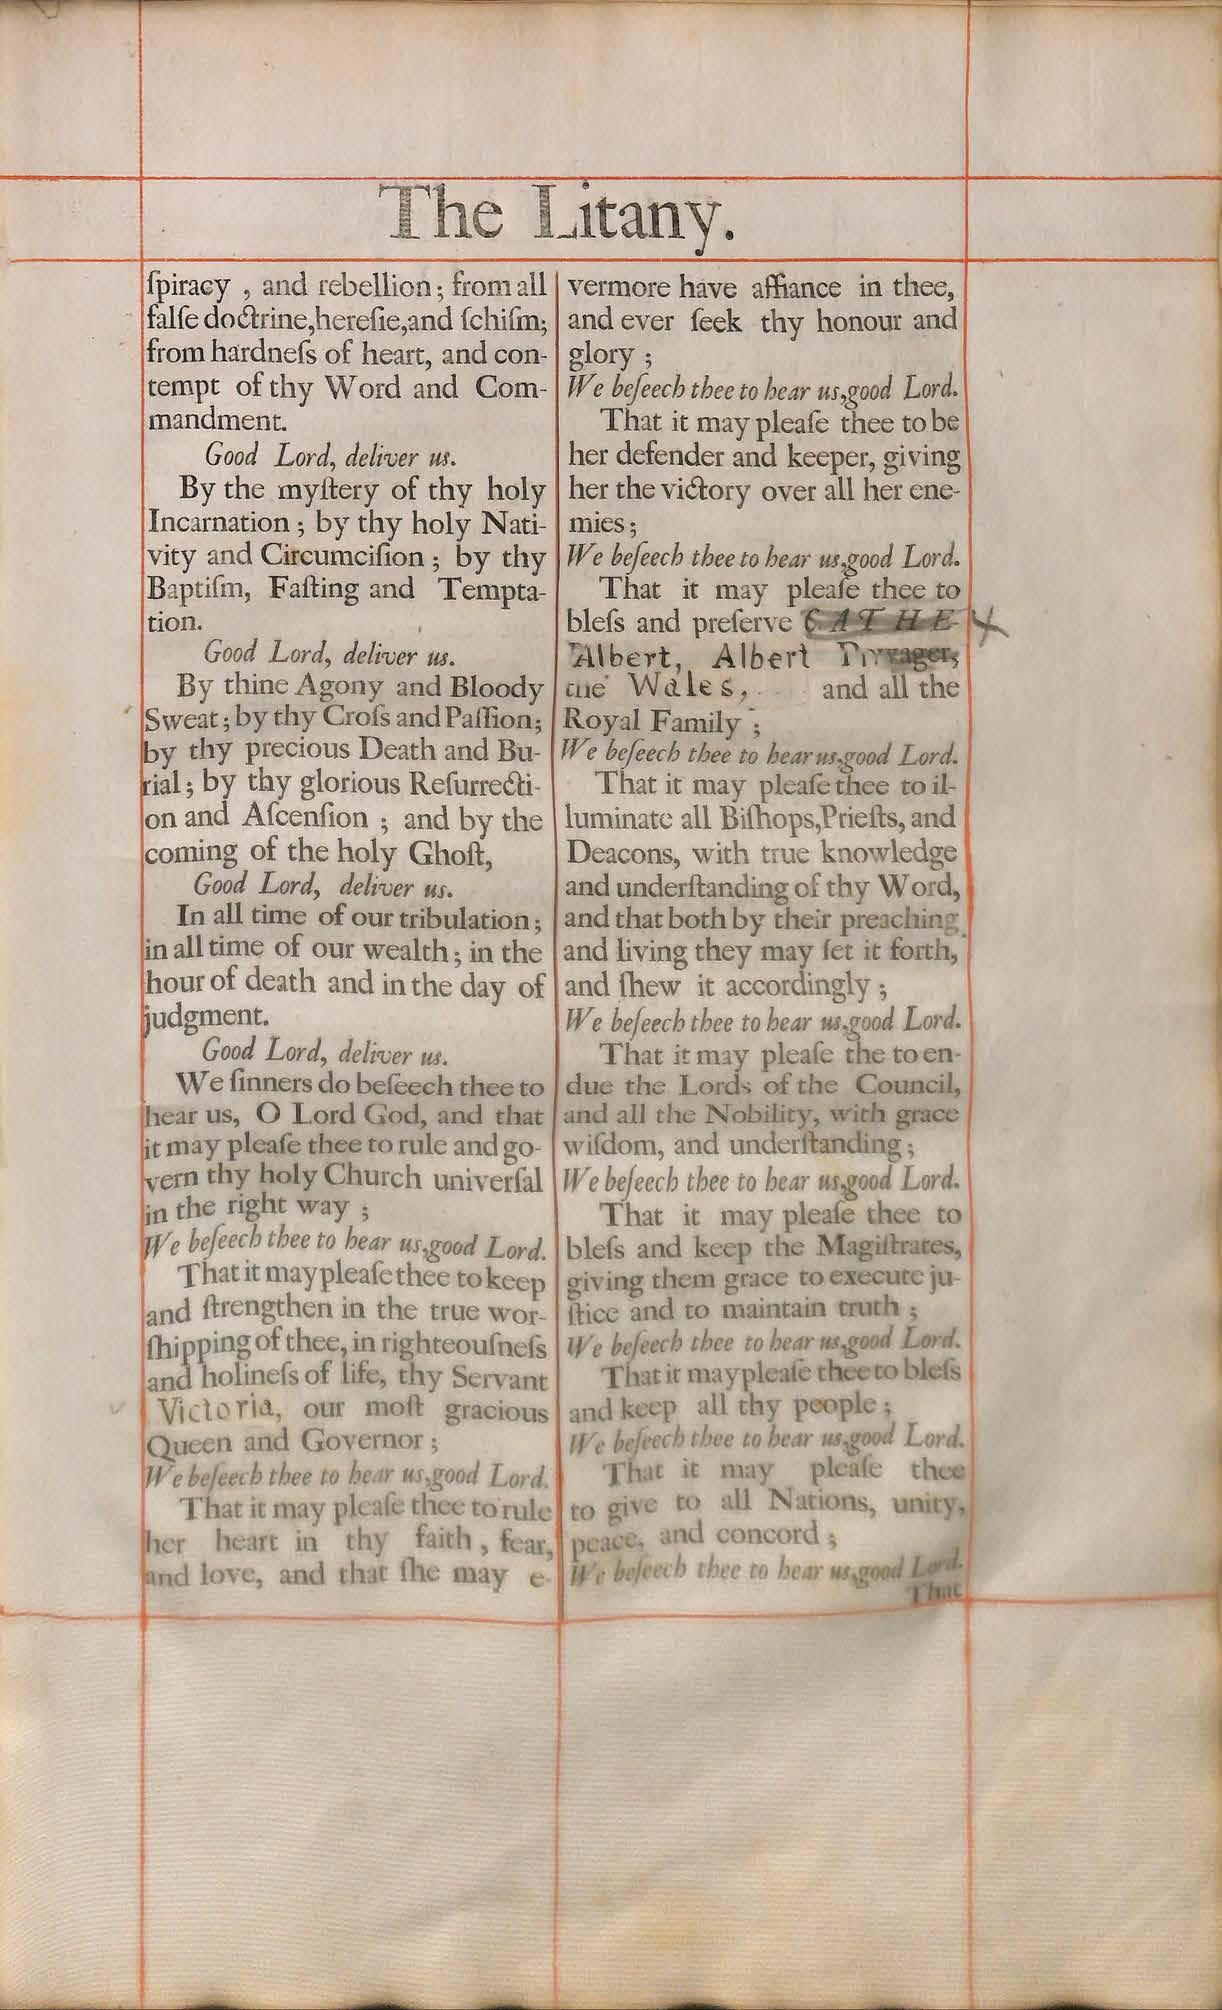 The Litany.
ſpiracy , and rebellion; from all
falſe doctrine,hereſie,and ſchiſm;
from hardneſs of heart, and con-
tempt of thy Word and Com-
mandment.
Good Lord, deliver us.
By the myſtery of thy holy
Incarnation ; by thy holy Nati-
vity and Circumciſion ; by thy
Baptiſm, Faſting and Tempta-
tion.
Good Lord, deliver us.
By thine Agony and Bloody
Sweat ; by thy Croſs and Paſſion;
by thy precious Death and Bu-
rial ; by thy glorious Reſurrecti-
on and Aſcenſion ; and by the
coming of the holy Ghoſt,
Good Lord, deliver us.
In all time of our tribulation ;
in all time of our wealth ; in the
hour of death and in the day of
judgment.
Good Lord, deliver us.
We ſinners do beſeech thee to
hear us, O Lord God, and that
it may pleaſe thee to rule and go-
vern thy holy Church univerſal
in the right way ;
We beſeech thee to hear us,good Lord.
That it may pleaſe thee to keep
and ſtrengthen in the true wor-
ſhipping of thee, in righteouſneſs
and holineſs of life, thy Servant
Victoria, our moſt gracious
Queen and Governor ;
We beſeech thee to hear us,good Lord.
That it may pleaſe thee to rule
her heart in thy faith , fear,
and love, and that ſhe may e-
vermore have affiance in thee,
and ever ſeek thy honour and
glory ;
We beſeech thee to hear us,good Lord.
That it may pleaſe thee to be
her defender and keeper, giving
her the victory over all her ene-
mies ;
We beſeech thee to hear us,good Lord.
That it may pleaſe thee to
bleſs and preſerve CATHE-
Albert, Albert
the Wales, and all the
Royal Family ;
We beſeech thee to hear us,good Lord.
That it may pleaſe thee to il-
luminate all Biſhops,Prieſts, and
Deacons, with true knowledge
and underſtanding of thy Word,
and that both by their preaching
and living they may ſet it forth,
and ſhew it accordingly ;
We beſeech thee to hear us,good Lord.
That it may pleaſe the to en-
due the Lords of the Council,
and all the Nobility, with grace
wiſdom, and underſtanding ;
We beſeech thee to hear us,good Lord.
That it may pleaſe thee to
bleſs and keep the Magiſtrates,
giving them grace to execute ju-
ſtice and to maintain truth ;
We beſeech thee to hear us,good Lord.
That it may pleaſe thee to bleſs
and keep all thy people ;
We beſeech thee to hear us,good Lord.
That it may pleaſe thee
to give to all Nations, unity,
peace, and concord ;
We beſeech thee to hear us,good Lord.
That